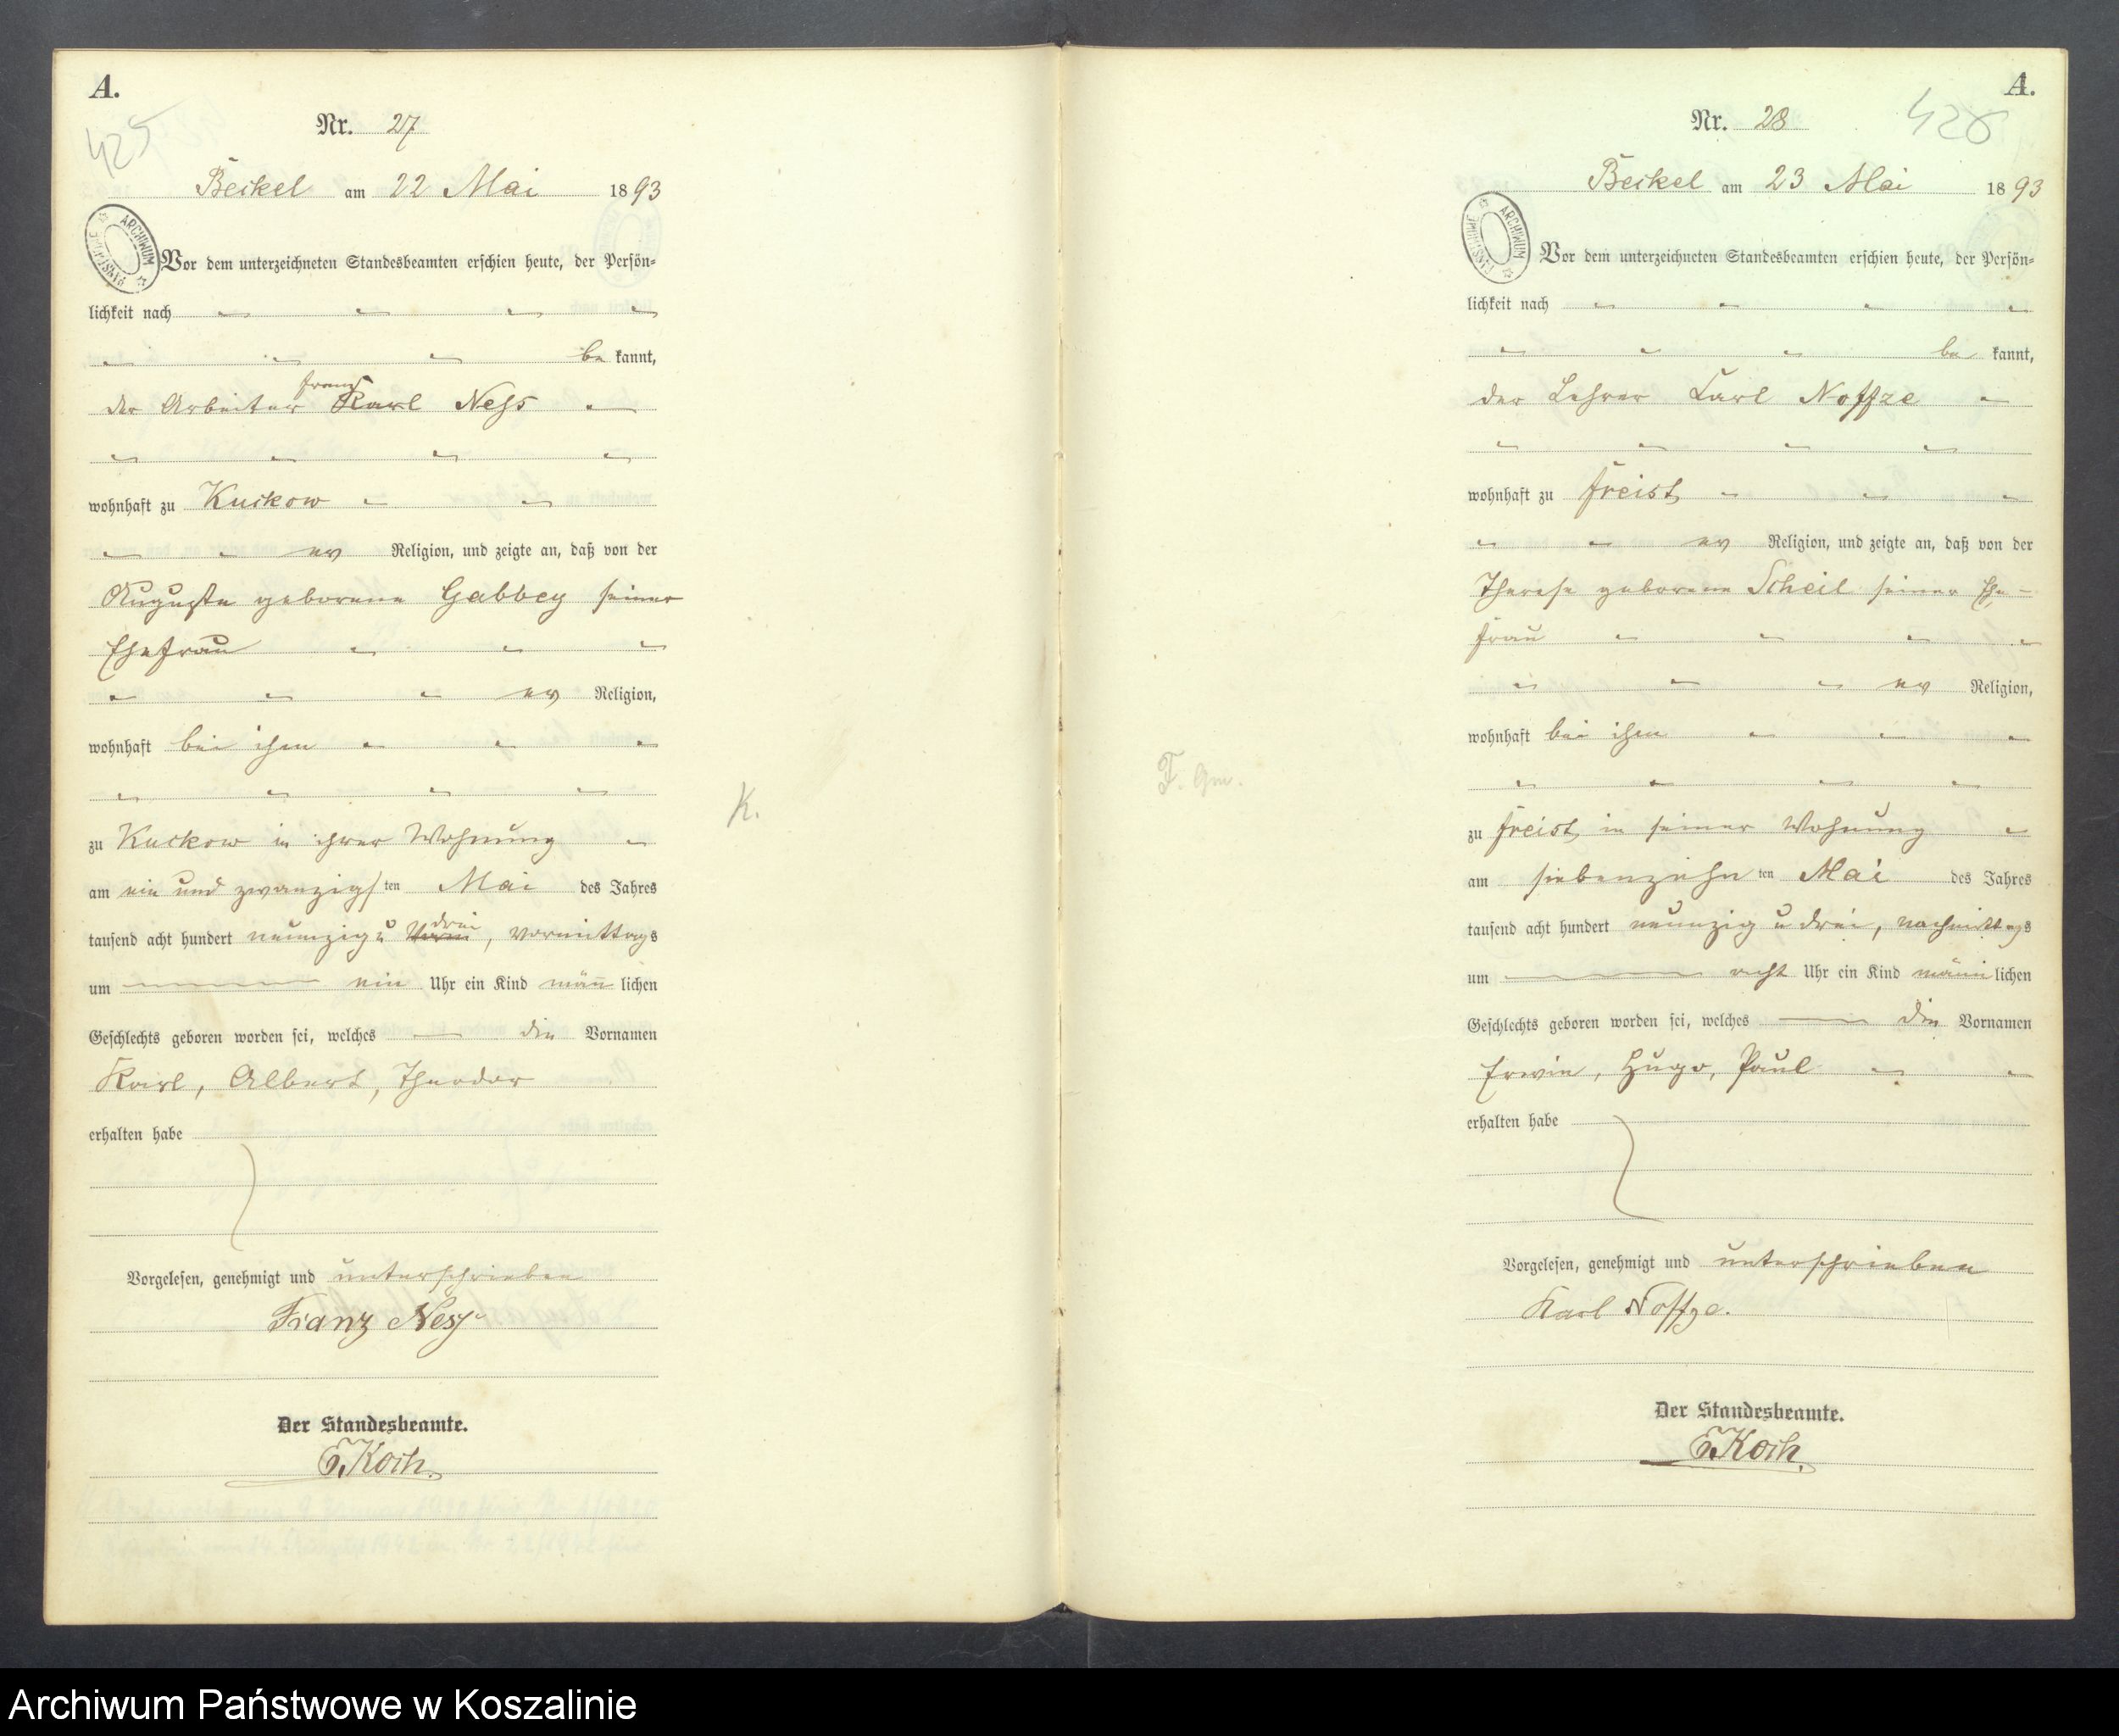 A.
425
Nr. 27
Beckel am 22 Mai 1893
ARCHIWUM PAŃSTWOWE
Vor dem unterzeichneten Standesbeamten erschien heute, der Persön-
lichkeit nach
be kannt,
Franz
der Arbeiter Karl Ness
wohnhaft zu Kuckow
ev Religion, und zeigte an, daß von der
Auguste geborene Gabbey seiner
Ehefrau
ev Religion,
wohnhaft bei ihm
K.
zu Kuckow in ihrer Wohnung
am ein und zwanzigsten Mai des Jahres
drei
tausend acht hundert neunzig u , vormittags
um ein Uhr ein Kind männlichen
Geschlechts geboren worden sei, welches die Vornamen
Karl, Albert, Theodor
erhalten habe
Vorgelesen, genehmigt und unterschrieben
Franz Ness
Der Standesbeamte.
E Koch.
A.
426
Nr. 28
Beckel am 23 Mai 1893
ARCHIWUM PAŃSTWOWE
Vor dem unterzeichneten Standesbeamten erschien heute, der Persön-
lichkeit nach
be kannt,
der Lehrer Carl Noffze
wohnhaft zu Freist
ev Religion, und zeigte an, daß von der
Therese geborene Scheil seiner Ehe-
frau
ev Religion,
wohnhaft bei ihm
F. Gm.
zu Freist in seiner Wohnung
am siebenzehnten Mai des Jahres
tausend acht hundert neunzig u drei, nachmittags
um acht Uhr ein Kind männlichen
Geschlechts geboren worden sei, welches die Vornamen
Erwin, Hugo, Paul
erhalten habe
Vorgelesen, genehmigt und unterschrieben
Karl Noffze.
Der Standesbeamte.
E Koch.
Archiwum Państwowe w Koszalinie